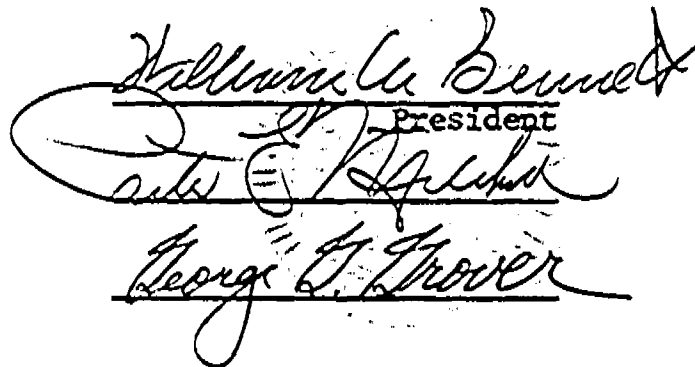 William A Bennett
President
George G. Grover